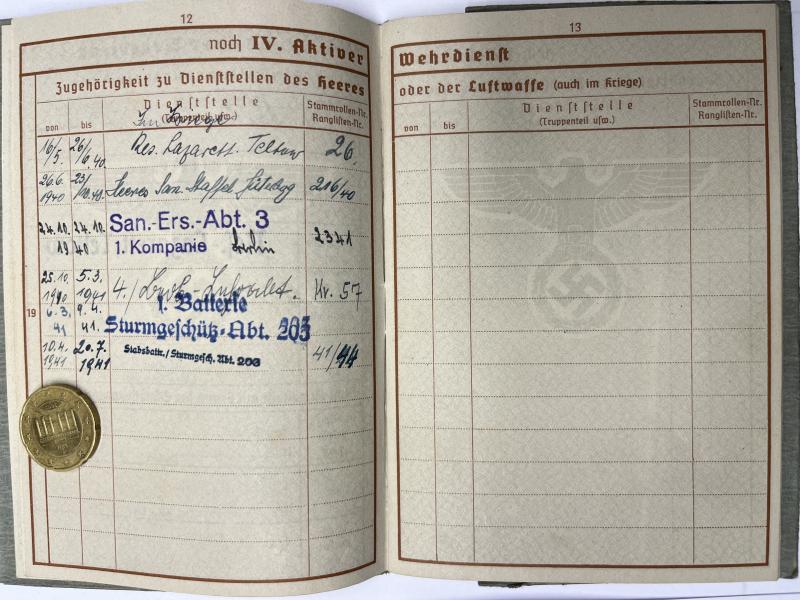 12
noch IV. Aktiver
Zugehörigkeit zu Dienststellen des Heeres
von
bis
Dienststelle
(Truppenteil usw.)
Stammrollen-Nr.
Ranglisten-Nr.
Im Kriege
16/5. 26/6.40. Res. Lazarett. Teltow 26.
26.6. 1940 23/10.40. Heeres San. Staffel Jüterbog 216/40
24.10. 24.10. San.-Ers.-Abt. 3
19 40 1. Kompanie Berlin 2341
25.10. 5.3.
1940 1941 4./ Nr. 57
6.3. 9.4. 1. Batterie
19
41 41. Sturmgeschütz-Abt. 203
10.4. 20.7. Stabsbattr./Sturmgesch. Abt. 203 41/44
1941 1941
13
Wehrdienst
oder der Luftwaffe (auch im Kriege)
von
bis
Dienststelle
(Truppenteil usw.)
Stammrollen-Nr.
Ranglisten-Nr.